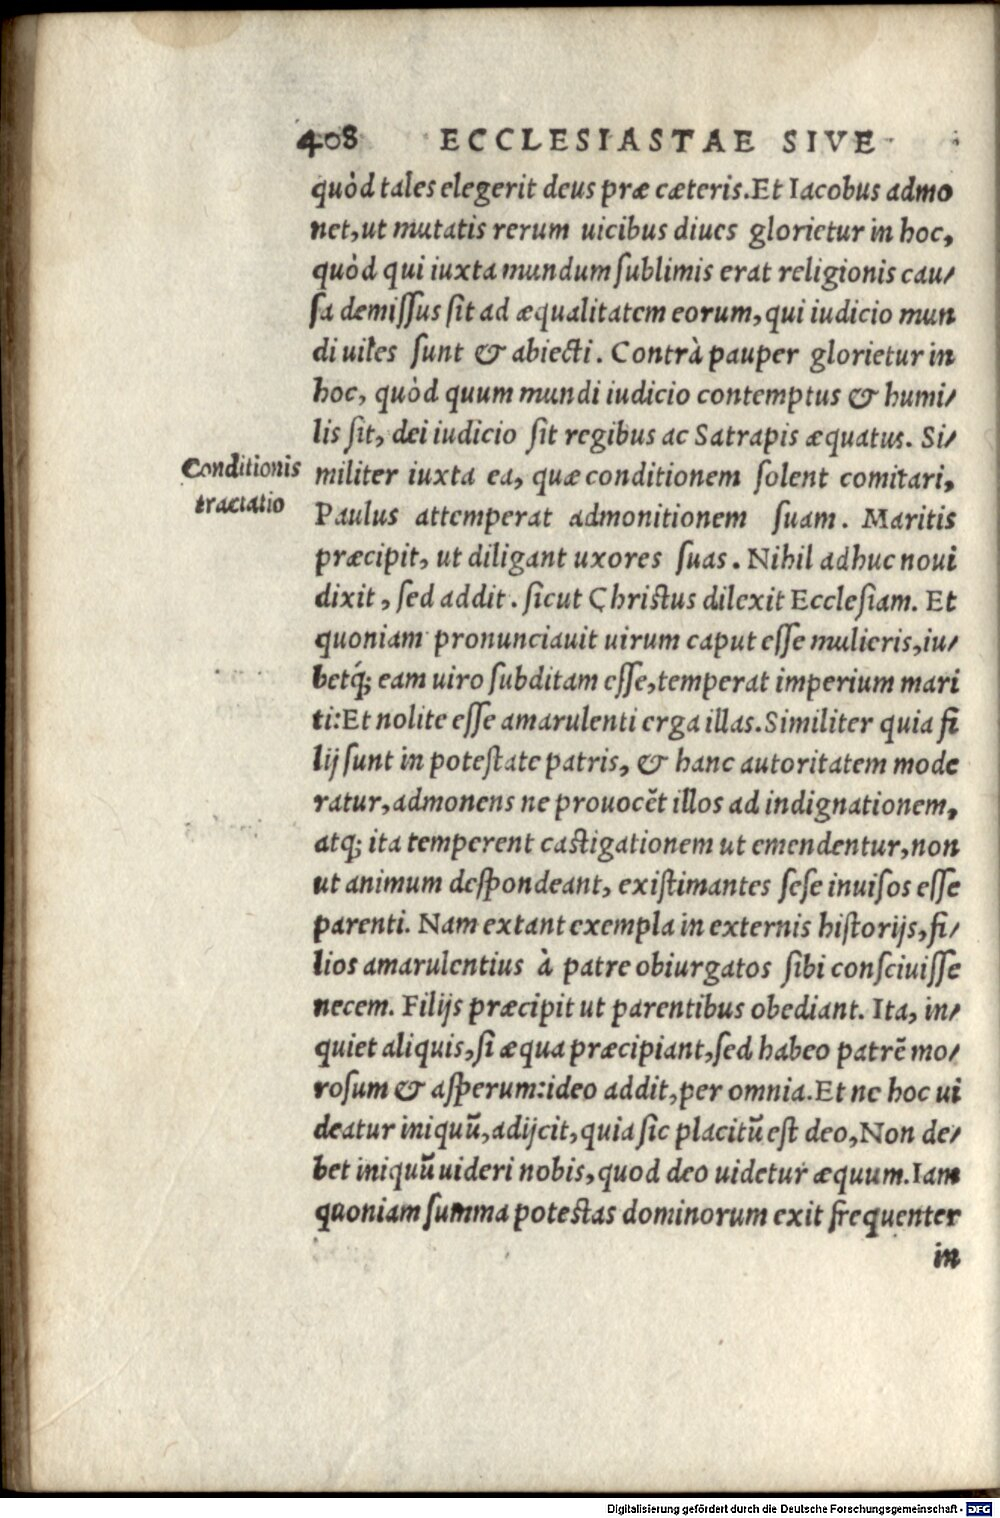 408 ECCLESIASTAE SIVE
quòd tales elegerit deus præ cæteris. Et Iacobus admo
net, ut mutatis rerum uicibus diues glorietur in hoc,
quòd qui iuxta mundum sublimis erat religionis cau/
sa demissus sit ad æqualitatem eorum, qui iudicio mun
di uiles sunt & abiecti. Contrà pauper glorietur in
hoc, quòd quum mundi iudicio contemptus & humi/
lis sit, dei iudicio sit regibus ac Satrapis æquatus. Si/
Conditionis
tractatio
militer iuxta ea, quæ conditionem solent comitari,
Paulus attemperat admonitionem suam. Maritis
præcipit, ut diligant uxores suas. Nihil adhuc noui
dixit, sed addit. sicut Christus dilexit Ecclesiam. Et
quoniam pronunciauit uirum caput esse mulieris, iu/
betq́; eam uiro subditam esse, temperat imperium mari
ti: Et nolite esse amarulenti erga illas. Similiter quia fi
lij sunt in potestate patris, & hanc autoritatem mode
ratur, admonens ne prouocẽt illos ad indignationem,
atq; ita temperent castigationem ut emendentur, non
ut animum despondeant, existimantes sese inuisos esse
parenti. Nam extant exempla in externis historijs, fi/
lios amarulentius à patre obiurgatos sibi consciuisse
necem. Filijs præcipit ut parentibus obediant. Ita, in/
quiet aliquis, si æqua præcipiant, sed habeo patrẽ mo/
rosum & asperum: ideo addit, per omnia. Et ne hoc ui
deatur iniquũ, adijcit, quia sic placitũ est deo, Non de/
bet iniquũ uideri nobis, quod deo uidetur æquum. Iam
quoniam summa potestas dominorum exit frequenter
in
Digitalisierung gefördert durch die Deutsche Forschungsgemeinschaft - DFG